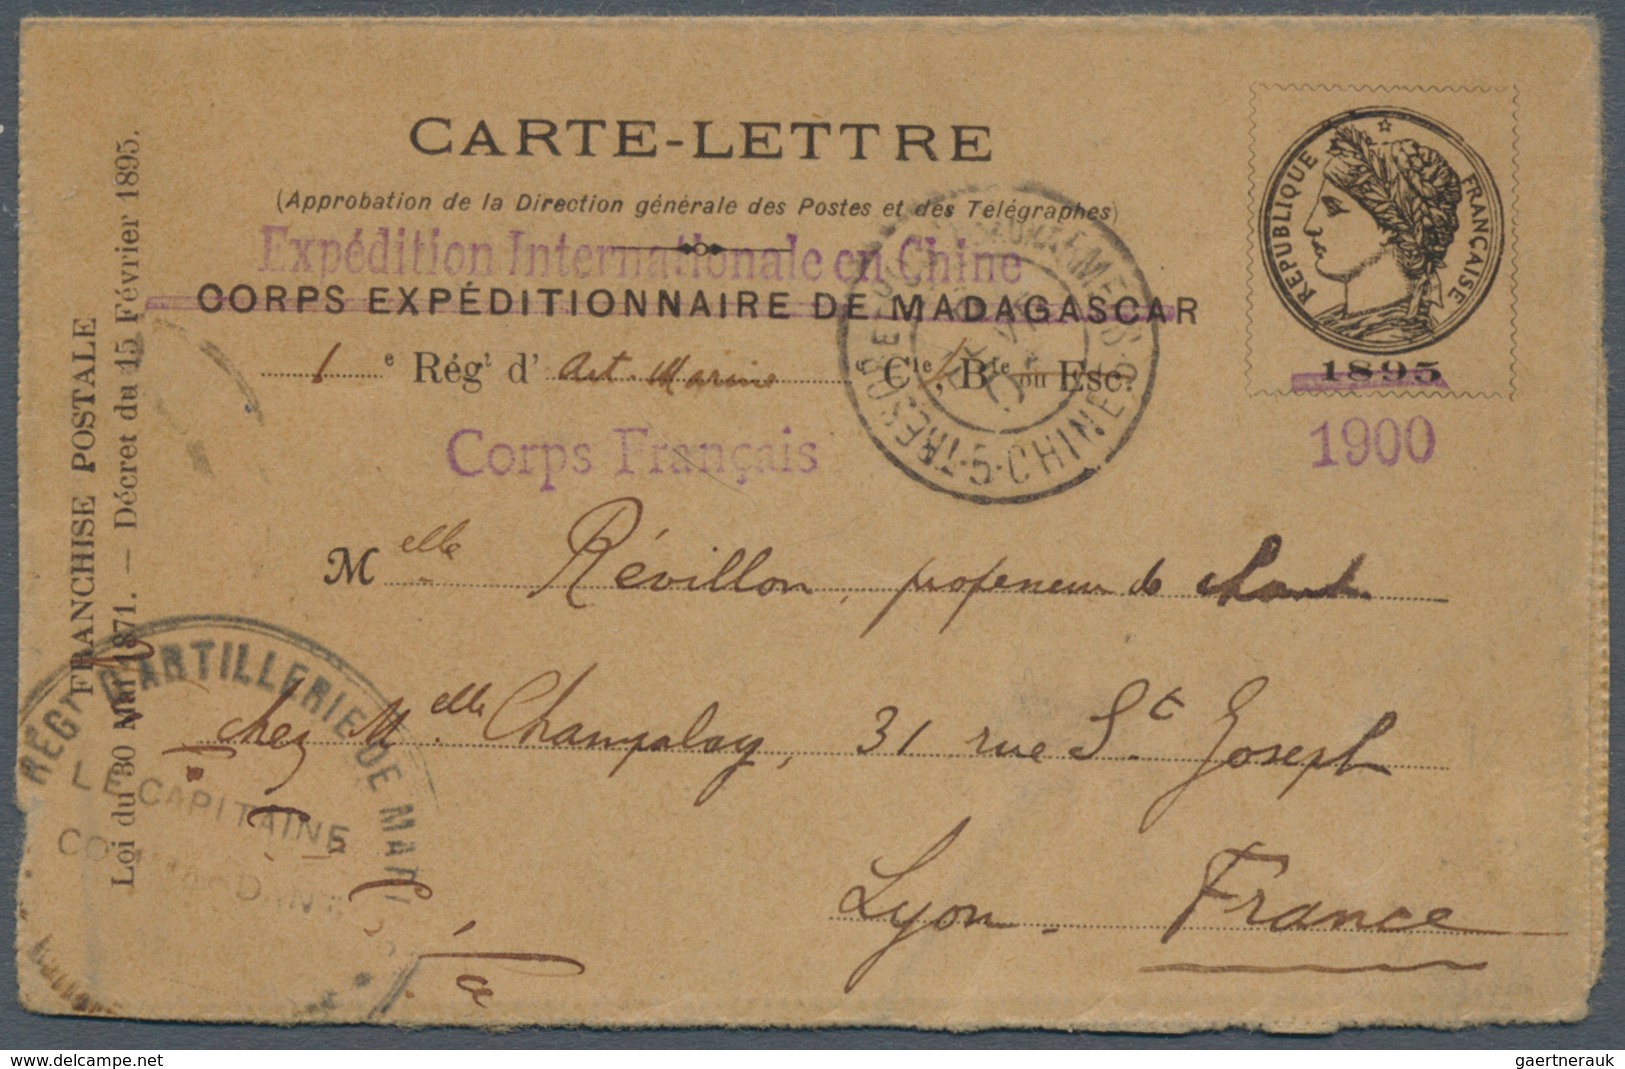 CARTE-LETTRE
(Approbation de la Direction générale des Postes et des Télégraphes)
Expédition Internationale en Chine
CORPS EXPÉDITIONNAIRE DE MADAGASCAR
1 e Régt d' Art. Marine Cie, Bie ou Esc.
Corps Français
RÉPUBLIQUE FRANÇAISE
1895
1900
TRESOR ET CHINE 5
FRANCHISE POSTALE
Loi du 30 Mai 1871. — Décret du 15 Février 1895.
Melle Révillon, professeur de chant
chez Melle Champalay, 31 rue St Joseph
Lyon. France
RÉGt D'ARTILLERIE DE MAR
LE CAPITAINE
COMMANDANT
gaertnerauk @ delcampe.net